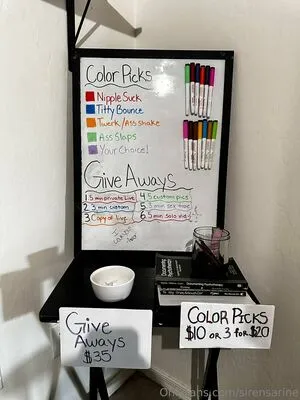 Color Picks
Nipple Suck
Titty Bounce
Twerk/Ass shake
Ass Slaps
Your Choice!
Give Aways
1. 5 min private Live
2. 3 min custom
3. Copy of live
4. 5 custom pics
5. 5 min sex tape
6. 5 min solo vid
Give
Aways
$35
Color Picks
$10 or 3 for $20
OnlyFans.com/sirensarine